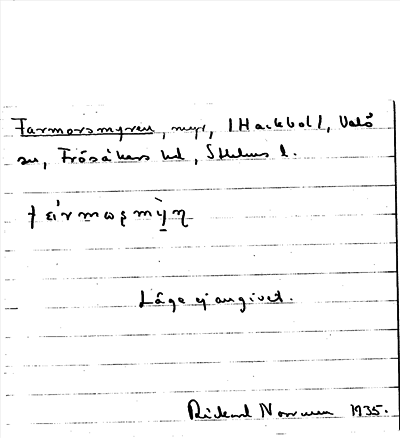 Farmorsmyren, myr, (Hackbol), Valö
sn, Frösåkers hd, Sthlms l.
Läge ej angivet.
Rickard 1935.